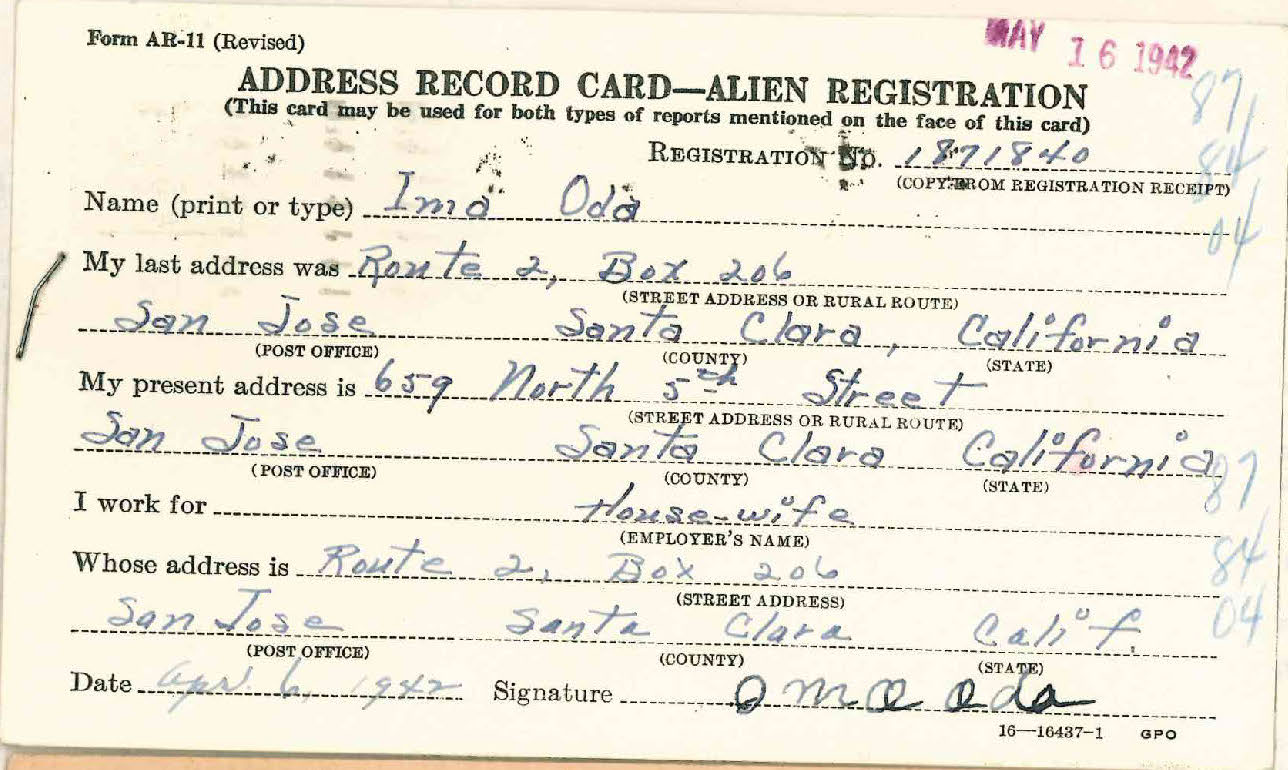 Form AR-11 (Revised)
MAY 16 1942
ADDRESS RECORD CARD—ALIEN REGISTRATION
(This card may be used for both types of reports mentioned on the face of this card)
REGISTRATION NO. 1871840
(COPY FROM REGISTRATION RECEIPT)
Name (print or type) Ima Oda
My last address was Route 2, Box 206
(STREET ADDRESS OR RURAL ROUTE)
San Jose Santa Clara, California
(POST OFFICE) (COUNTY) (STATE)
My present address is 659 North 5th Street
(STREET ADDRESS OR RURAL ROUTE)
San Jose Santa Clara California
(POST OFFICE) (COUNTY) (STATE)
I work for House-wife
(EMPLOYER'S NAME)
Whose address is Route 2, Box 206
(STREET ADDRESS)
San Jose Santa Clara Calif.
(POST OFFICE) (COUNTY) (STATE)
Date Apr. 6, 1942 Signature Ima Oda
16—16437-1 GPO
87
84
04
87
84
04